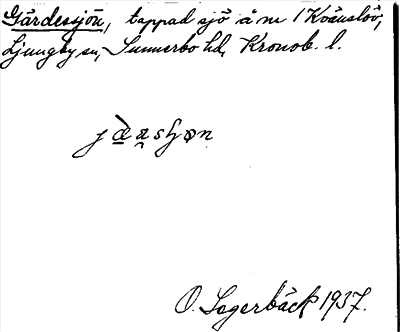 Gärdessjön, tappad sjö å nr 1 Kvänslöv,
Ljungby sn, Sunnerbo hd, Kronob. l.
O. Lagerbäck 1937.